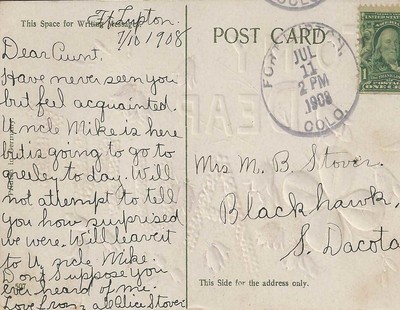 This Space for Writing Messages
Ft Lupton.
7/10 1908
Dear Aunt,
Have never seen you
but feel acquainted.
Uncle Mike is here
but is going to go to
Greeley to day. Will
not attempt to tell
you how surprised
we were. Will leave it
to Uncle Mike.
Dont suppose you
ever heard of me.
Love from all Alice Stover
507
POST CARD
COLO.
FORT LUPTON,
JUL
11
2 PM
1908
COLO.
1
Mrs M. B. Stover.
Blackhawk.
S. Dacota
This Side for the address only.